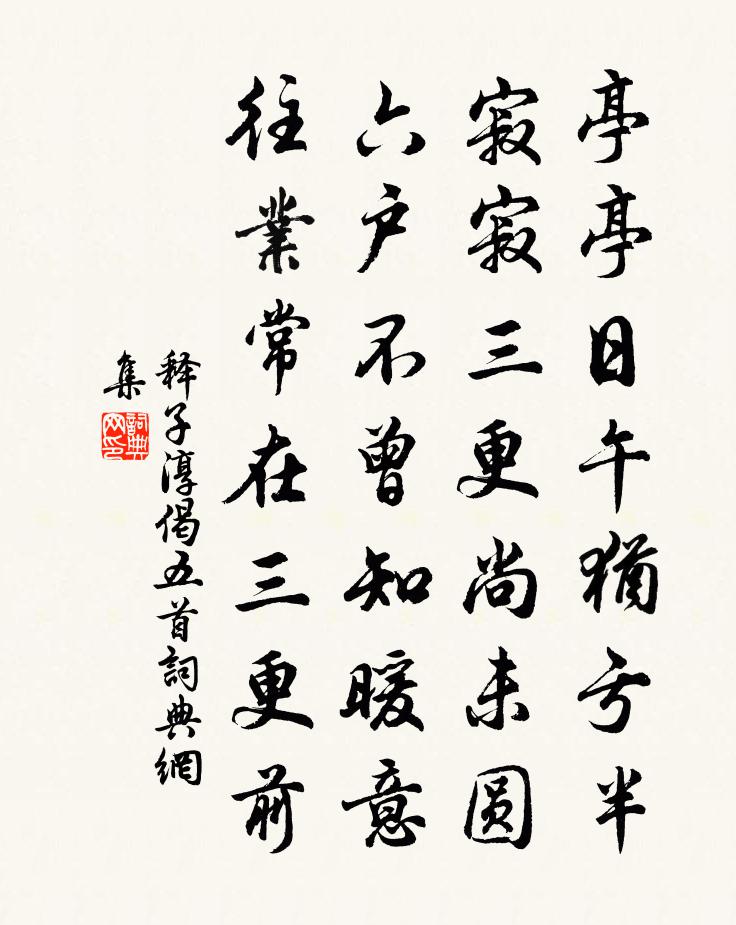 亭亭日午猶亏半
寂寂三更尚未圆
六户不曾知暖意
往業常在三更前
释子淳偈五首詞典網
集
詞典
网印